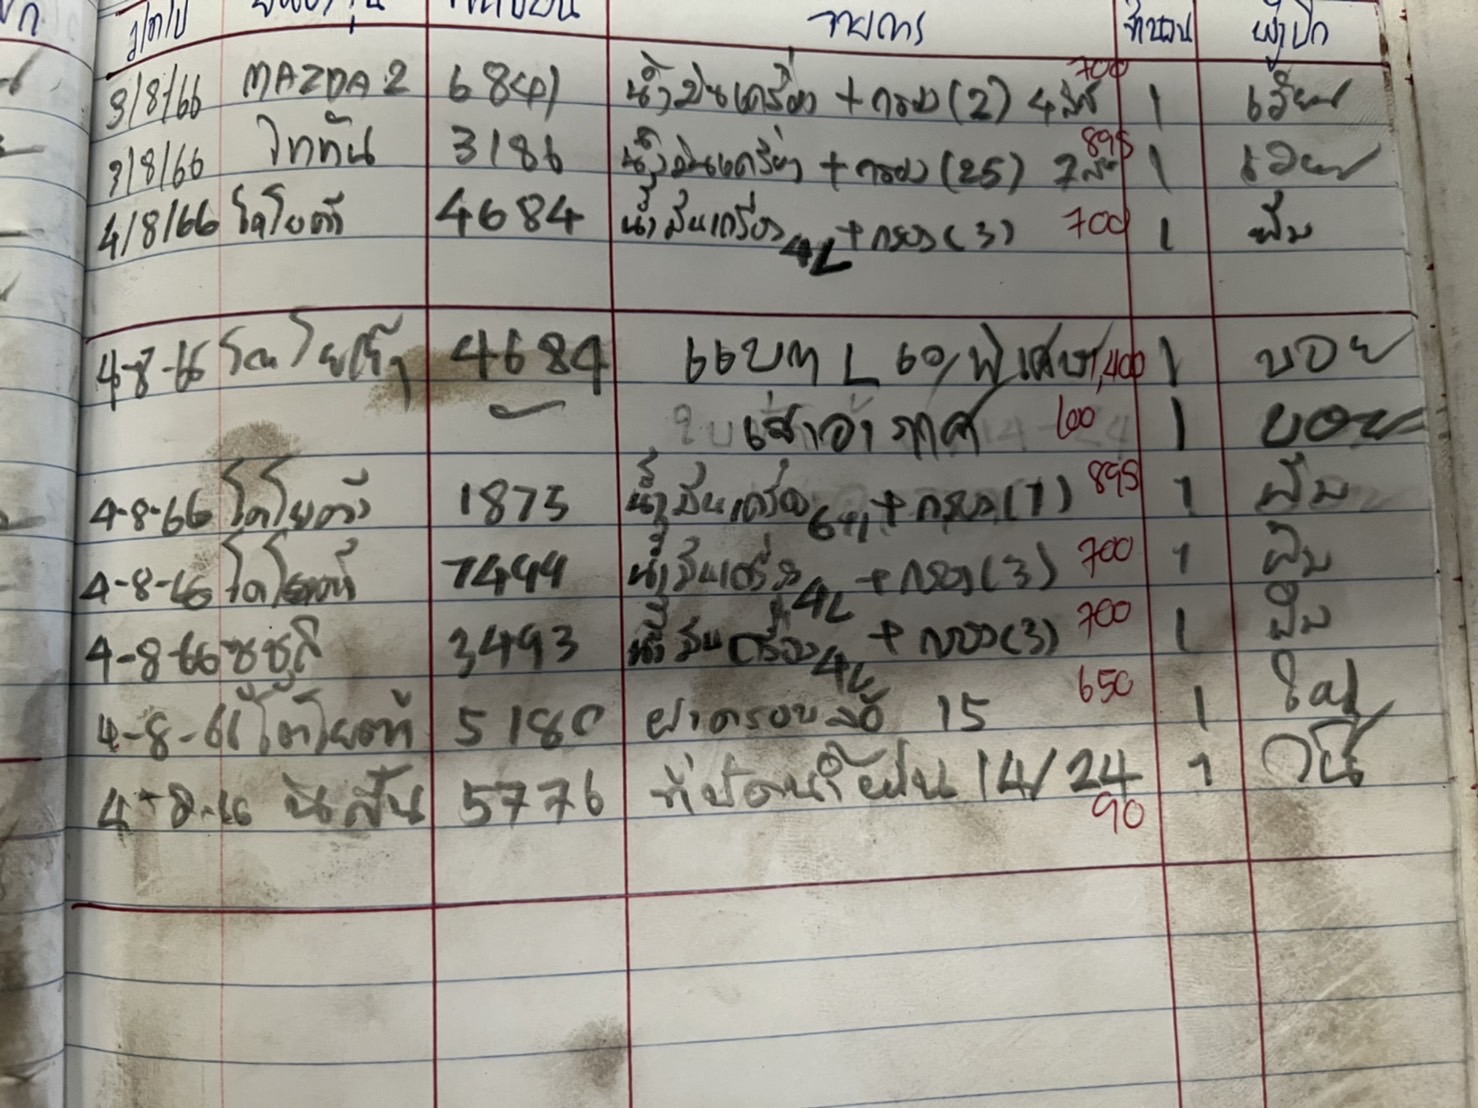 ว/ด/ป รายการ จำนวน ผู้เบิก
3/8/66 MAZDA 2 6841 น้ำมันเครื่อง + กรอง (2) 4 ลิตร 700 1
3/8/66 ไททัน 3186 น้ำมันเครื่อง + กรอง (25) 7 ลิตร 895 1
4/8/66 โตโยต้า 4684 น้ำมันเครื่อง 4L + กรอง (3) 700 1 พิม
4-8-66 โตโยต้า 4684 แบต L 60/พิเศษ 1,400 1 บอย
เสาอากาศ 600 1 บอย
4-8-66 โตโยต้า 1875 น้ำมันเครื่อง + กรอง (1) 895 1 พิม
4-8-66 โตโยต้า 7499 น้ำมันเครื่อง 4L + กรอง (3) 700 1 พิม
4-8-66 ซูซูกิ 3493 น้ำมันเครื่อง 4L + กรอง (3) 700 1 พิม
4-8-66 โตโยต้า 5180 ฝาครอบล้อ 15 650 1
4-8-66 นิสสัน 5776 ที่ปัดน้ำฝน 14/24 90 1